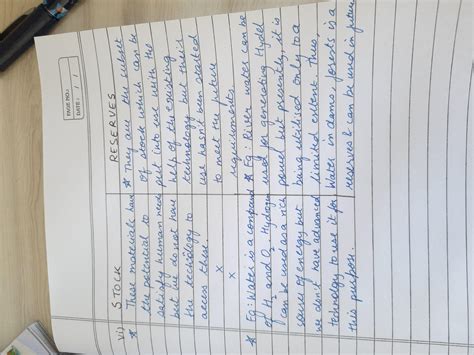 PAGE NO.:
DATE: / /
vi) STOCK
* These materials have
the potential to
satisfy human needs
but we do not have
the technology to
access them.
x
x
* Eg: Water is a compound
of H2 and O2. Hydrogen
can be used as a rich
source of energy but
we don't have advanced
technology to use it for
this purpose.
RESERVES
* They are the subset
of stock which can be
put into use with the
help of the existing
technology but their
use hasn't been started
to meet the future
requirements.
* Eg: River water can be
used for generating Hydel
power but presently, it is
being utilised only to a
limited extent. Thus,
Water in dams, forests is a
reserves & can be used in future.